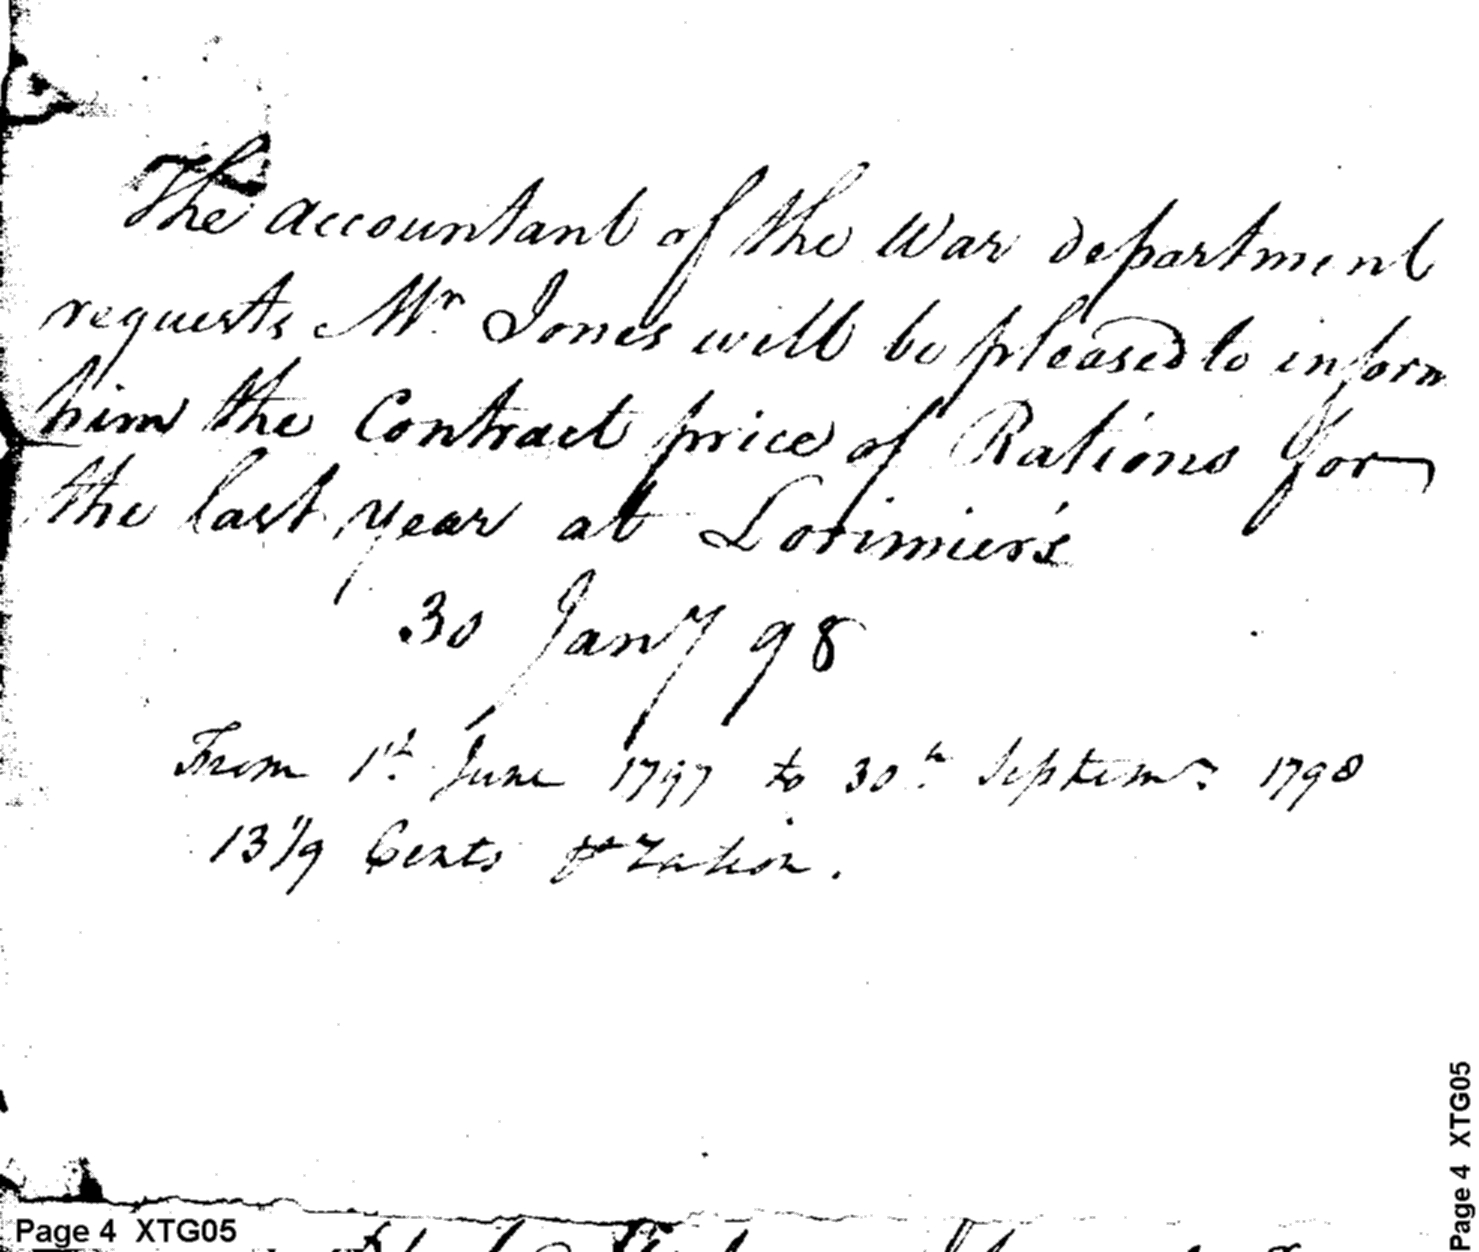 The Accountant of the War department
requests Mr Jones will be pleased to inform
him the Contract price of Rations for
the last year at Lorimier's
30 Jany 98
From 1st June 1797 to 30th Septemr 1798
13 1/9 Cents pr ration.
Page 4 XTG05
Page 4 XTG05